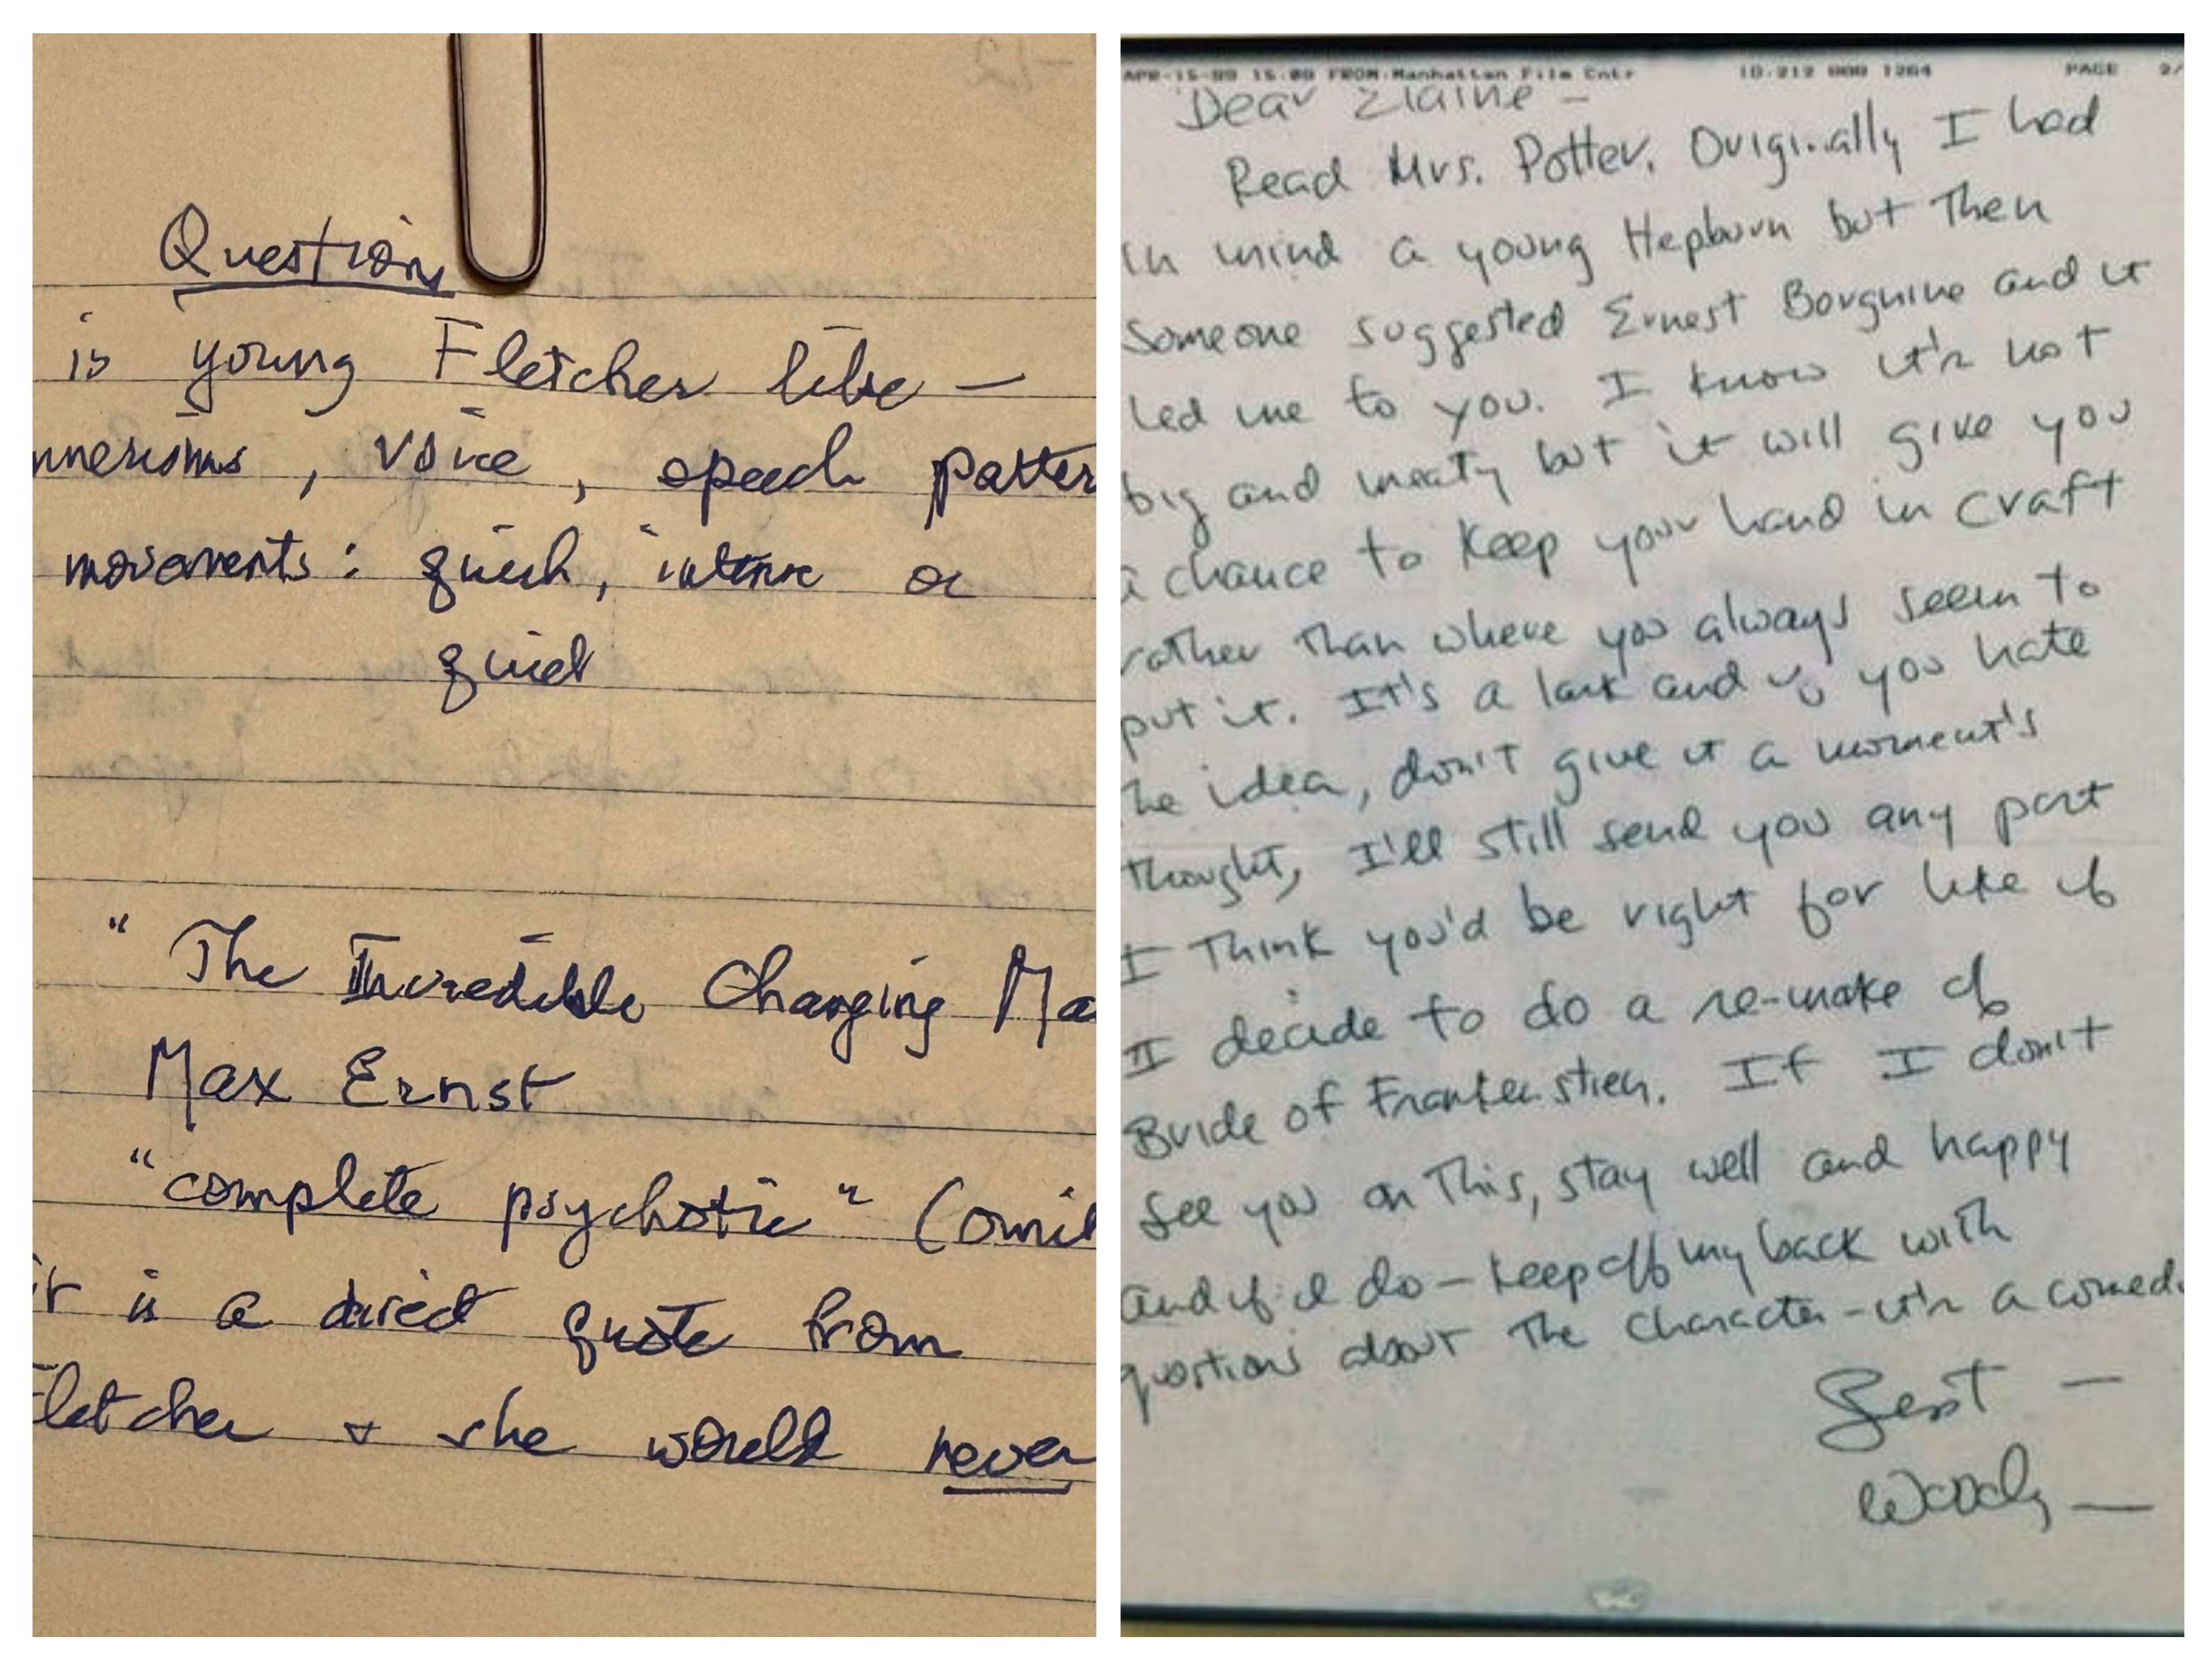 Question
is young Fletcher like —
nnerisms, voice, speech patter
movements: quick, intense or
quiet
"The Incredible Changing Ma
Max Ernst
"complete psychotic" (omit
it is a direct quote from
Fletcher + she would never
APR-15-99 15:09 FROM:Manhattan Film Cntr ID:212 PAGE 2/
Dear Elaine —
Read Mrs. Potter. Originally I had
in mind a young Hepburn but then
someone suggested Ernest Borgnine and it
led me to you. I know it's not
big and meaty but it will give you
a chance to keep your hand in craft
rather than where you always seem to
put it. It's a lark and if you hate
he idea, don't give it a moment's
thought, I'll still send you any part
I think you'd be right for like if
I decide to do a re-make of
Bride of Frankenstien. If I don't
see you on this, stay well and happy
and if I do — keep off my back with
questions about the character — it's a comedy
Best —
Woody —